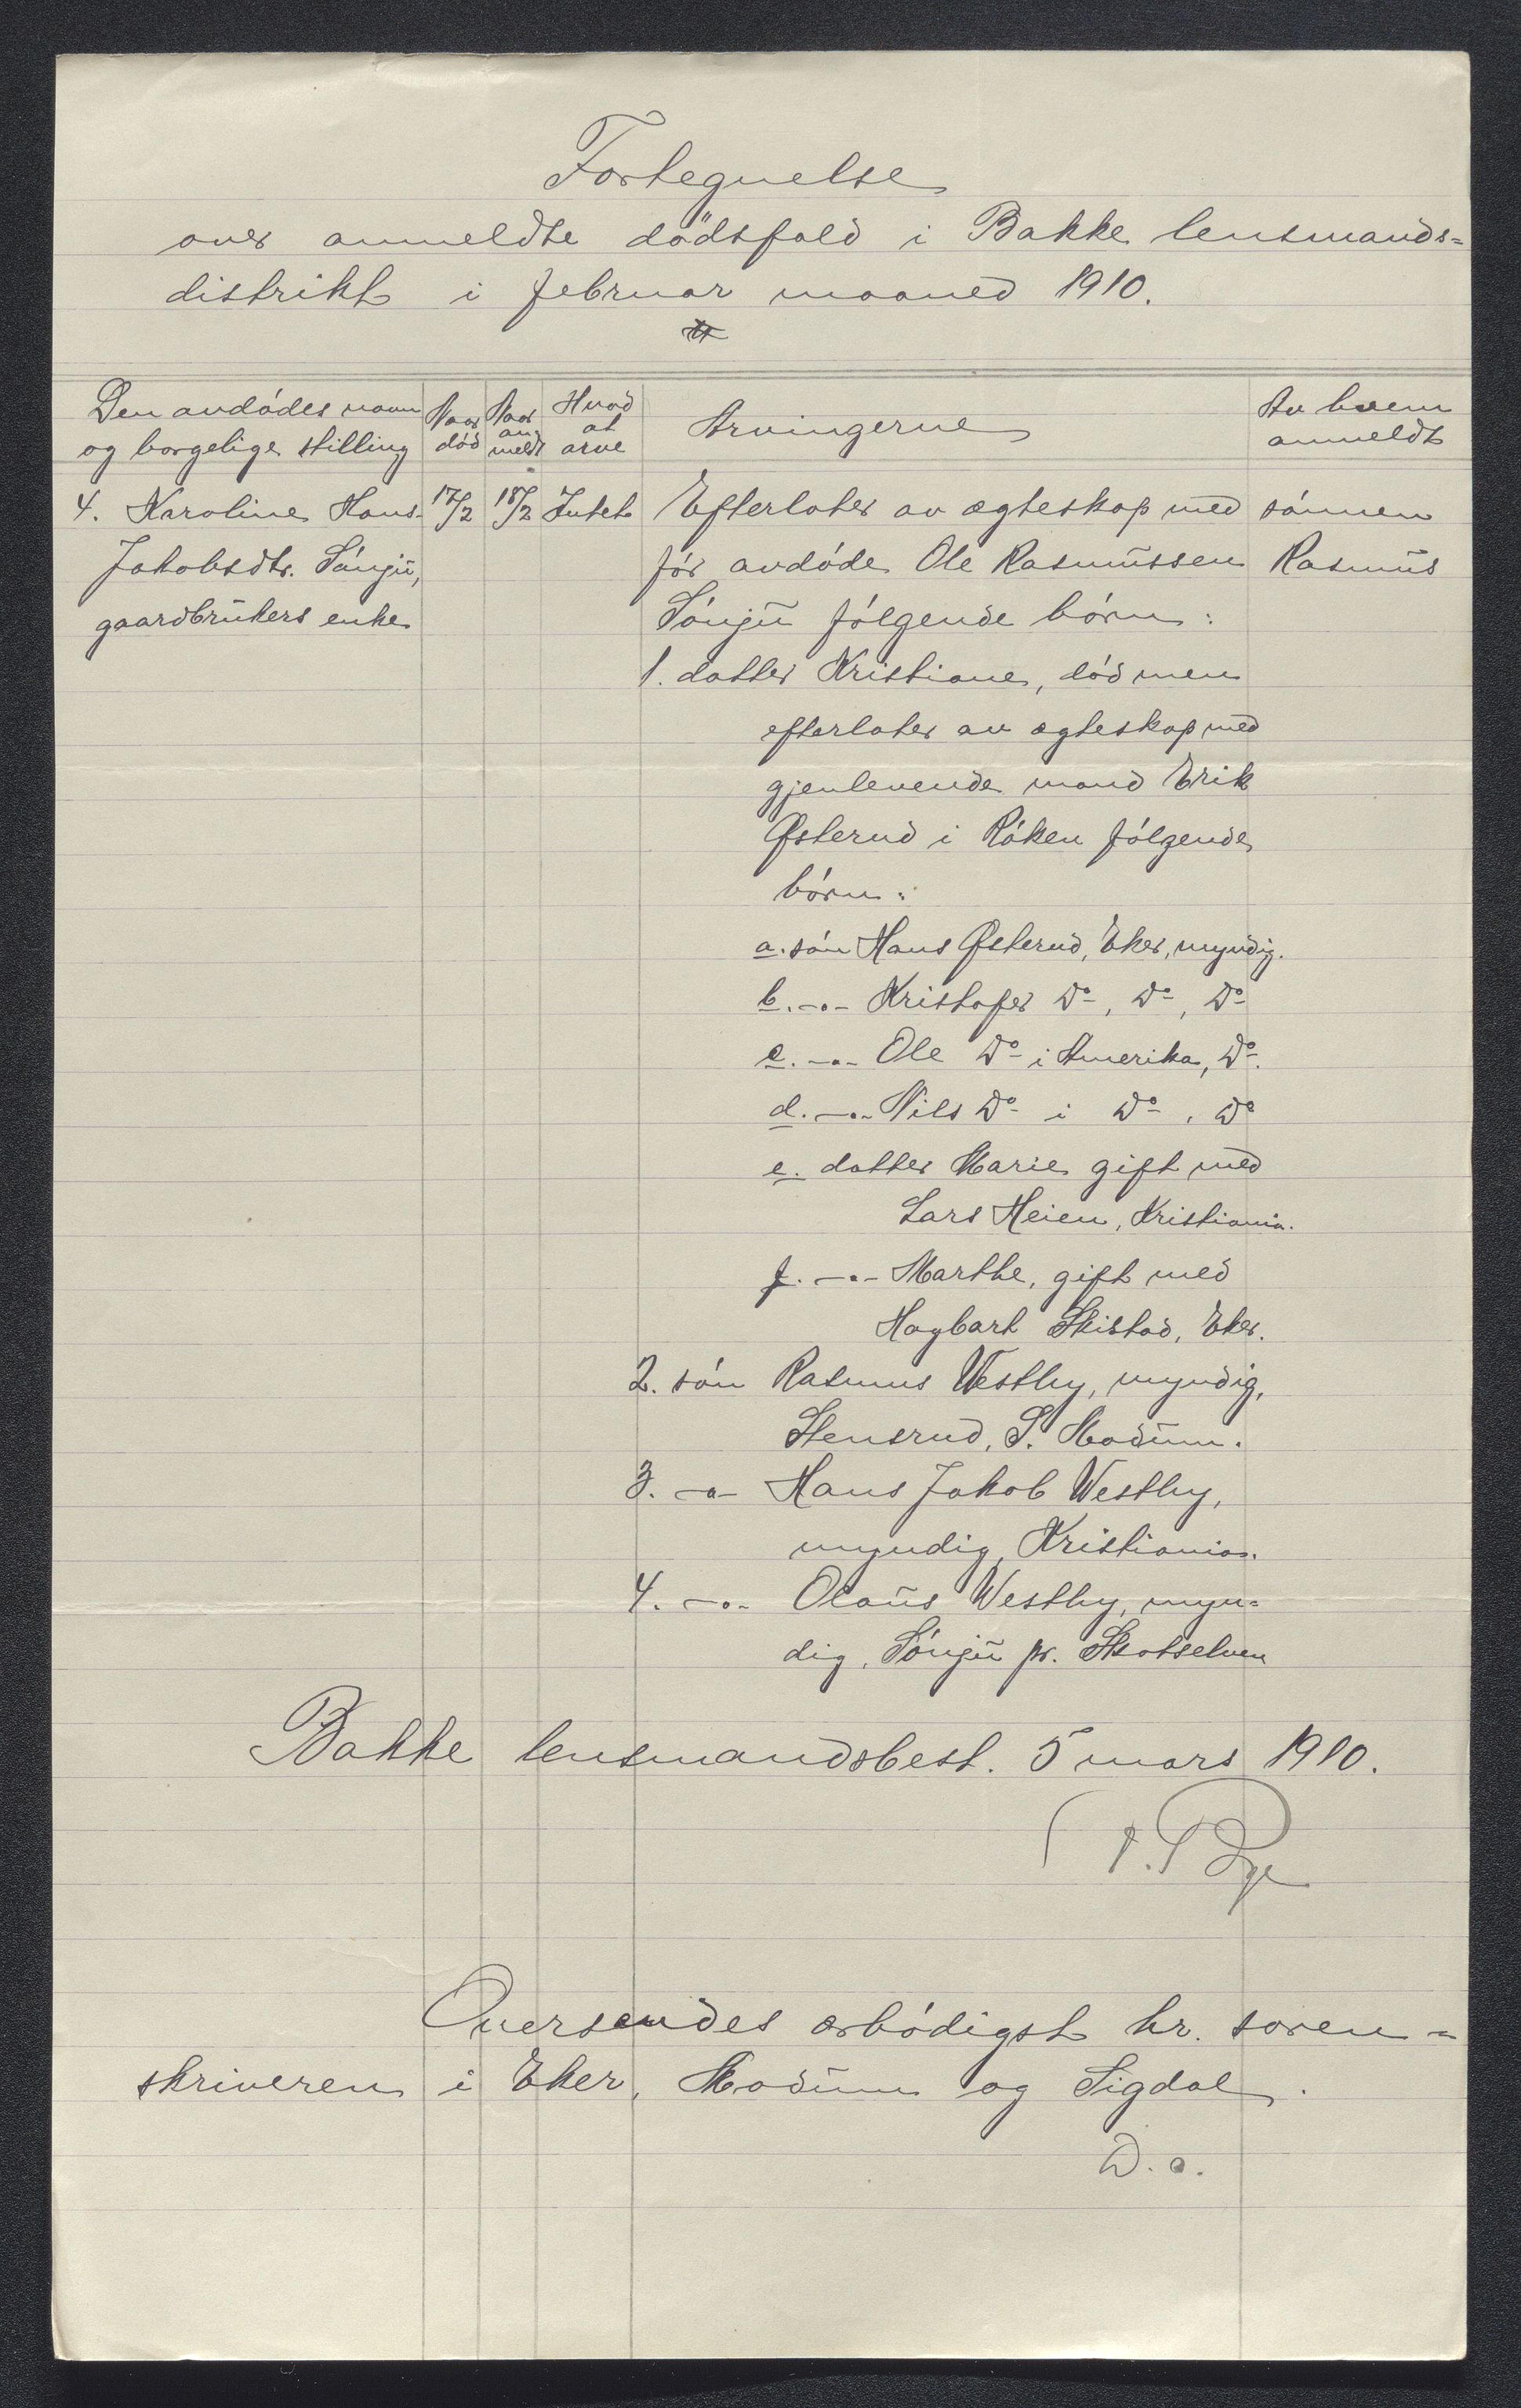 Fortegnelse
over anmeldte dödsfald i Bakke lensmands=
distrikt i februar maaned 1910.
Den avdødes navn
og borgelige stilling
Naar
død
Naar
an
meldt
Hvad
at
arve
Arvingerne
Av hvem
anmeldt
4. Karoline Hans-
Jakobsdtr. Sønju,
gaardbrukers enke
17/2
18/2
Intet
Efterlater av ægteskap med
før avdøde Ole Rasmussen
Sønju følgende børn:
1. datter Kristiane, død men
efterlater av ægteskap med
gjenlevende mand Erik
Østerud i Røken følgende
børn:
a. søn Hans Østerud, Eker, myndig.
b. -"- Kristofer Do, Do, Do
c. -"- Ole Do i Amerika, Do.
d. -"- Nils Do i Do, Do
e. datter Marie gift med
Lars Heien, Kristiania.
f. -"- Marthe, gift med
Hagbart Skistad, Eker.
2. søn Rasmus Westby, myndig,
Stensrud, S. Modum.
3. -"- Hans Jakob Westby,
myndig, Kristiania.
4. -"- Olaus Westby, myn=
dig, Sønju pr. Skotselven
sønnen
Rasmus
Bakke lensmandsbest. 5 mars 1910.
Oversendes ærbødigst hr. soren=
skriveren i Eker, Modum og Sigdal.
D. o.